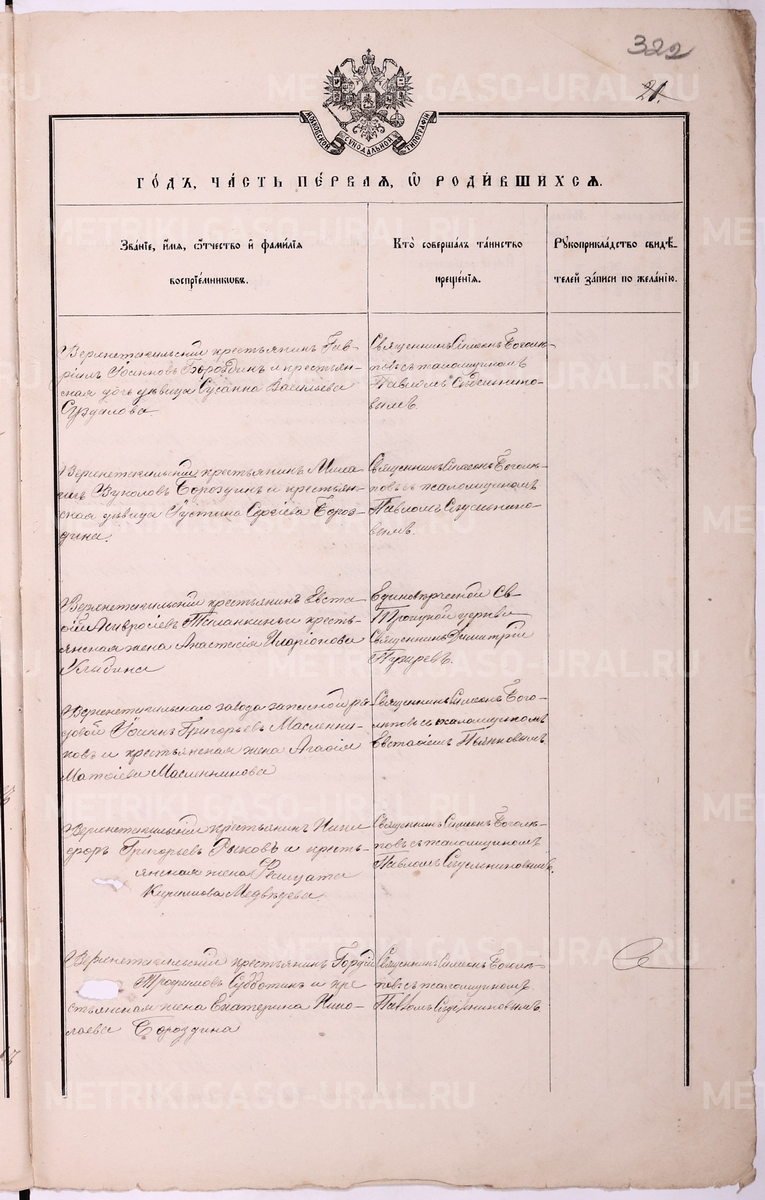 322
21.
МОСКОВСКОЙ СѴНОДАЛЬНОЙ ТИПОГРАФІИ
ГОДЪ, ЧАСТЬ ПЕРВАЯ, Ѡ РОДИВШИХСЯ.
Званіе, имя, отчество и фамилія
воспріемниковъ.
Кто совершалъ таинство
крещенія.
Рукоприкладство свидѣ-
телей записи по желанію.
Верхнетагильский крестьянинъ Гав-
ріилъ Іоанновъ Бороздинъ и крестьян-
ская дочь дѣвица Сусанна Васильева
Суздалова
Священникъ Симеонъ Боголю-
повъ съ псаломщикомъ
Павломъ
вымъ.
Верхнетагильский крестьянинъ Миха-
илъ Вуколовъ Бороздинъ и крестьян-
ская дѣвица Іустина Сергіева Бороз-
дина.
Священникъ Симеонъ Боголю-
повъ съ псаломщикомъ
Павломъ
вымъ.
Верхнетагильский крестьянинъ Евста-
фій Амвросіевъ и кресть-
янская жена Анастасія Иларіонова
Единовѣрческой Св.
Троицкой церкви
Священникъ Димитрій
Верхнетагильскаго завода запасной ря-
довой Іоаннъ Григорьевъ Масленни-
ковъ и крестьянская жена Агафія
Матѳіева Масленникова
Священникъ Симеонъ Бого-
люповъ съ псаломщикомъ
Евстафіемъ Пьянковымъ
Верхнетагильский крестьянинъ Ники-
форъ Григорьевъ Рыковъ и кресть-
янская жена
Кирилова Медвѣдева.
Священникъ Симеонъ Боголю-
повъ съ псаломщикомъ
Павломъ
Верхнетагильский крестьянинъ Гордій
Трофимовъ Субботинъ и кре-
стьянская жена Екатерина Нико-
лаева Бороздина
Священникъ Симеонъ Боголю-
повъ съ псаломщикомъ
Павломъ
METRIKI.GASO-URAL.RU